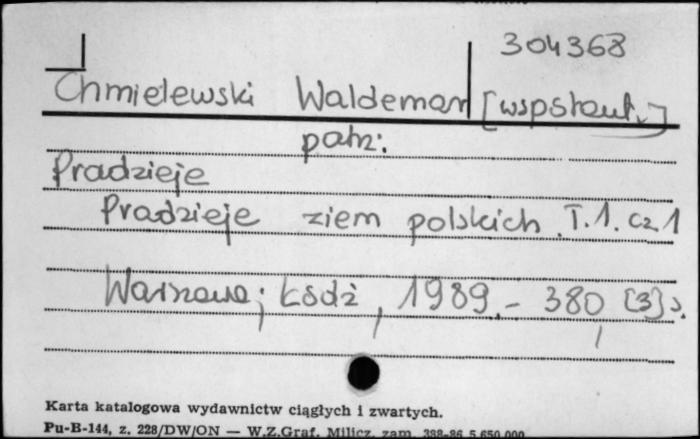 304368
Chmielewski Waldemar [współaut.]
patrz:
Pradzieje
Pradzieje ziem polskich. T.1. cz 1
Warszawa; Łódź, 1989.- 380, [3]s.
Karta katalogowa wydawnictw ciągłych i zwartych.
Pu-B-144, z. 228/DW/ON — W.Z.Graf. Milicz, zam. 388-86 5.650.000